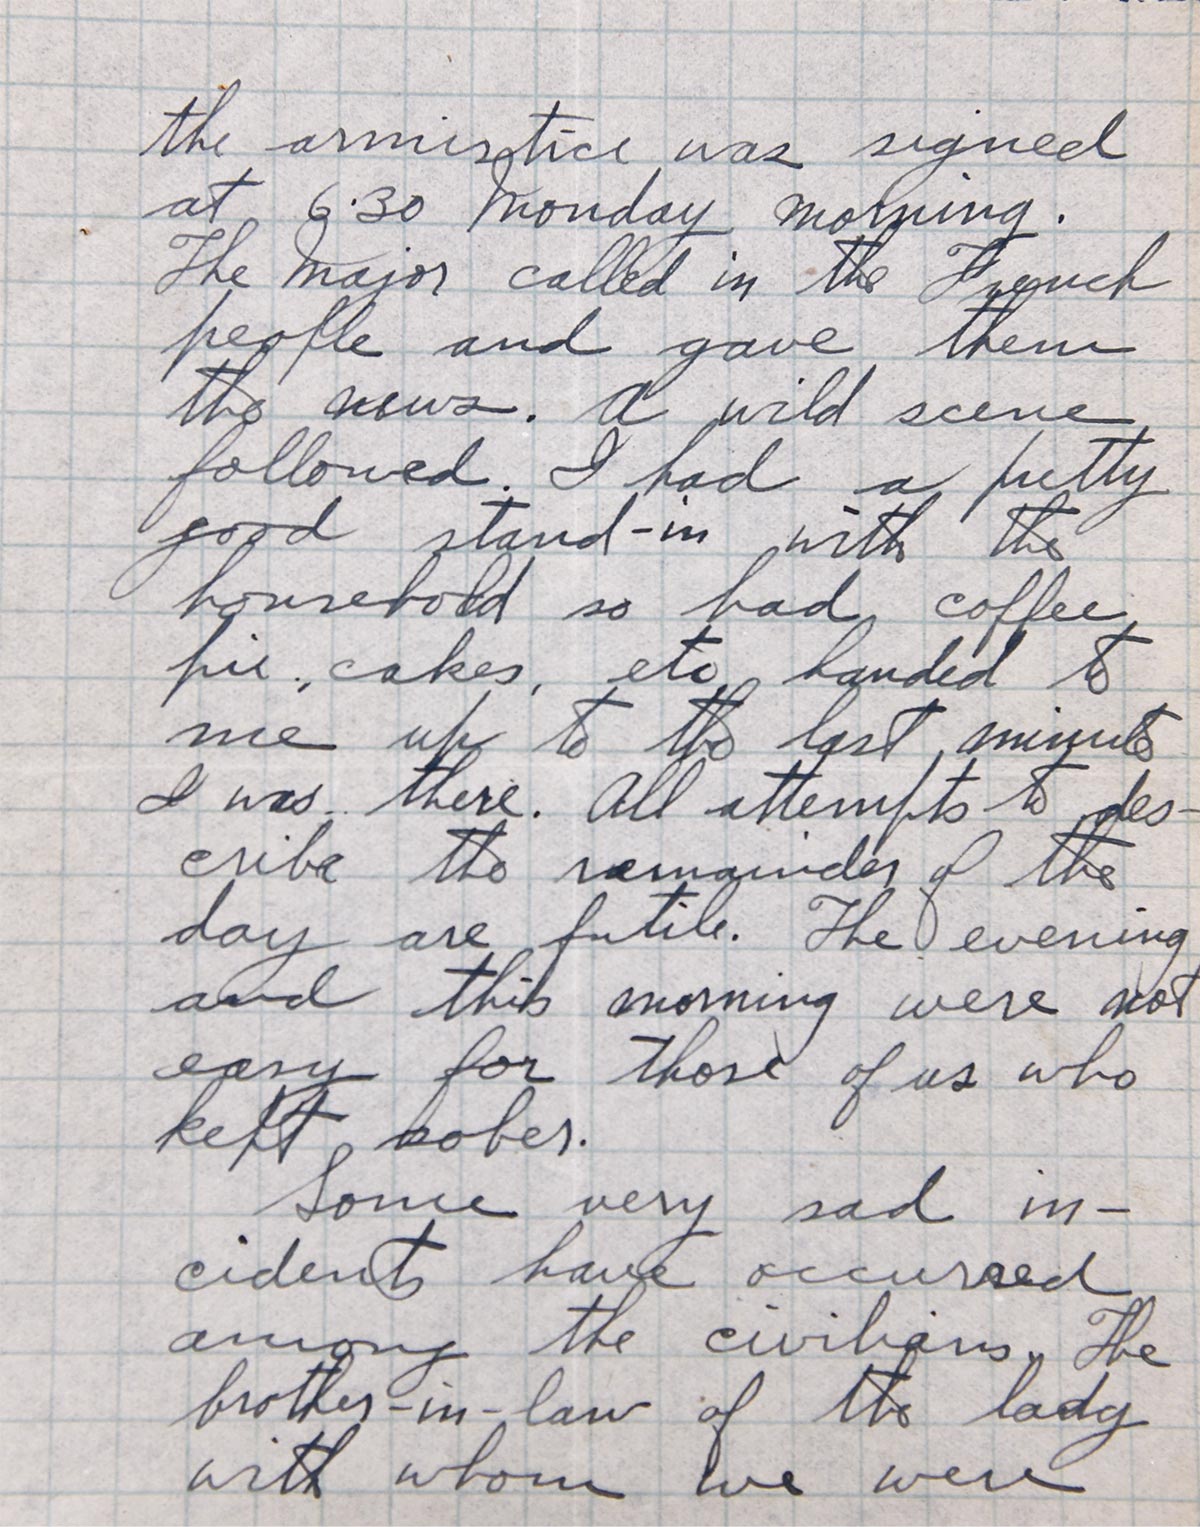 the armistice was signed
at 6:30 Monday morning.
The Major called in the French
people and gave them
the news. A wild scene
followed. I had a pretty
good stand-in with the
household so had coffee,
pie, cakes, etc handed to
me up to the last minute
I was there. All attempts to des-
cribe the remainder of the
day are futile. The evening
and this morning were not
easy for those of us who
kept sober.
Some very sad in-
cidents have occurred
among the civilians. The
brother-in-law of the lady
with whom we were